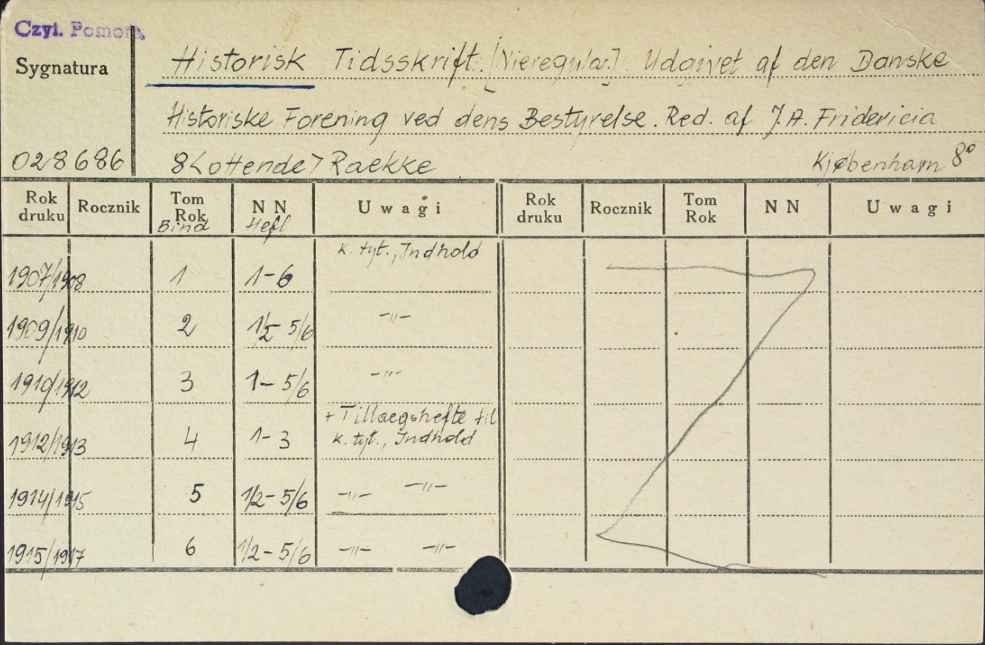 Czyt. Pomorz.
Sygnatura
Historisk Tidsskrift. [Nieregular.]. Udgivet af den Danske
Historiske Forening ved dens Bestyrelse. Red. af J.A. Fridericia
028686 8<ottende> Raekke Kjøbenhavn 8°
Rok druku Rocznik Tom Rok N N U w a g i Rok druku Rocznik Tom Rok N N U w a g i
Bind Heft
k. tyt., Indhold
1907/1908 1 1-6
1909/1910 2 1/2 5/6 -"-
1910/1912 3 1- 5/6 -"-
+ Tillaegshefte til
1912/1913 4 1- 3 k. tyt., Indhold
1914/1915 5 1/2- 5/6 -"- -"-
1915/1917 6 1/2- 5/6 -"- -"-